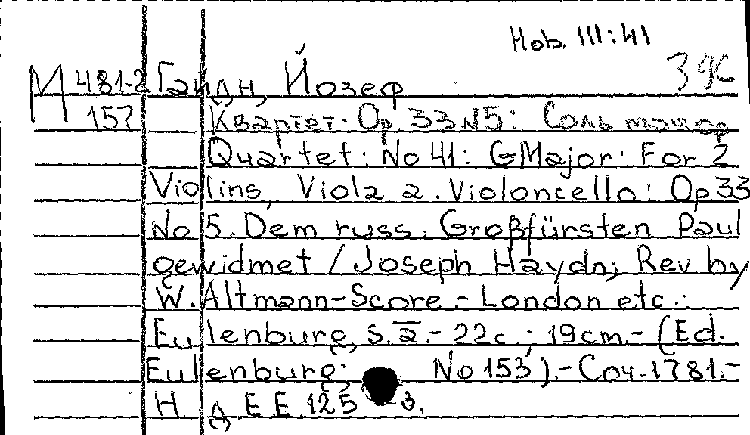 Hob. III:41
М 481-2 Гайдн, Йозеф
157 Квартет: Op. 33 N5: Соль мажор
Quartet: No 41: G Major: For 2
Violins, Viola a. Violoncello: Op 33
No 5. Dem russ. Großfürsten Paul
gewidmet / Joseph Haydn; Rev by
W. Altmann - Score. - London etc.:
Eulenburg, S. a. - 22 c.; 19 cm. - (Ed.
Eulenburg; No 153). - Соч. 1781. -
Н. д. E E 125